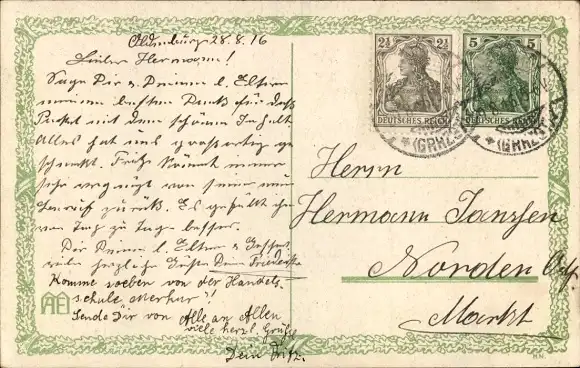 Oldenburg 28.8.16
Lieber Hermann!
Sage Dir & Deinen l. Eltern
meinen besten Dank für das
Paket mit dem schönen Inhalt
Alles hat uns großartig ge
schmeckt. Fritz kommt immer
sehr vergnügt von seiner
zurück. Es gefällt ihm
von Tag zu Tage besser.
Dir Deinen l. Eltern & Geschw.
viele herzliche Grüße Deine Friederike
Komme soeben von der Handels-
schule Merkur!
Sende Dir von Alle an Allen
viele herzl. Grüße
Dein Fritz.
AE
2½ 2½
DEUTSCHES REICH
5 5
DEUTSCHES REICH
*(GRHZ
*(GRHZ
Herrn
Hermann Janssen
Norden Ostf.
Markt